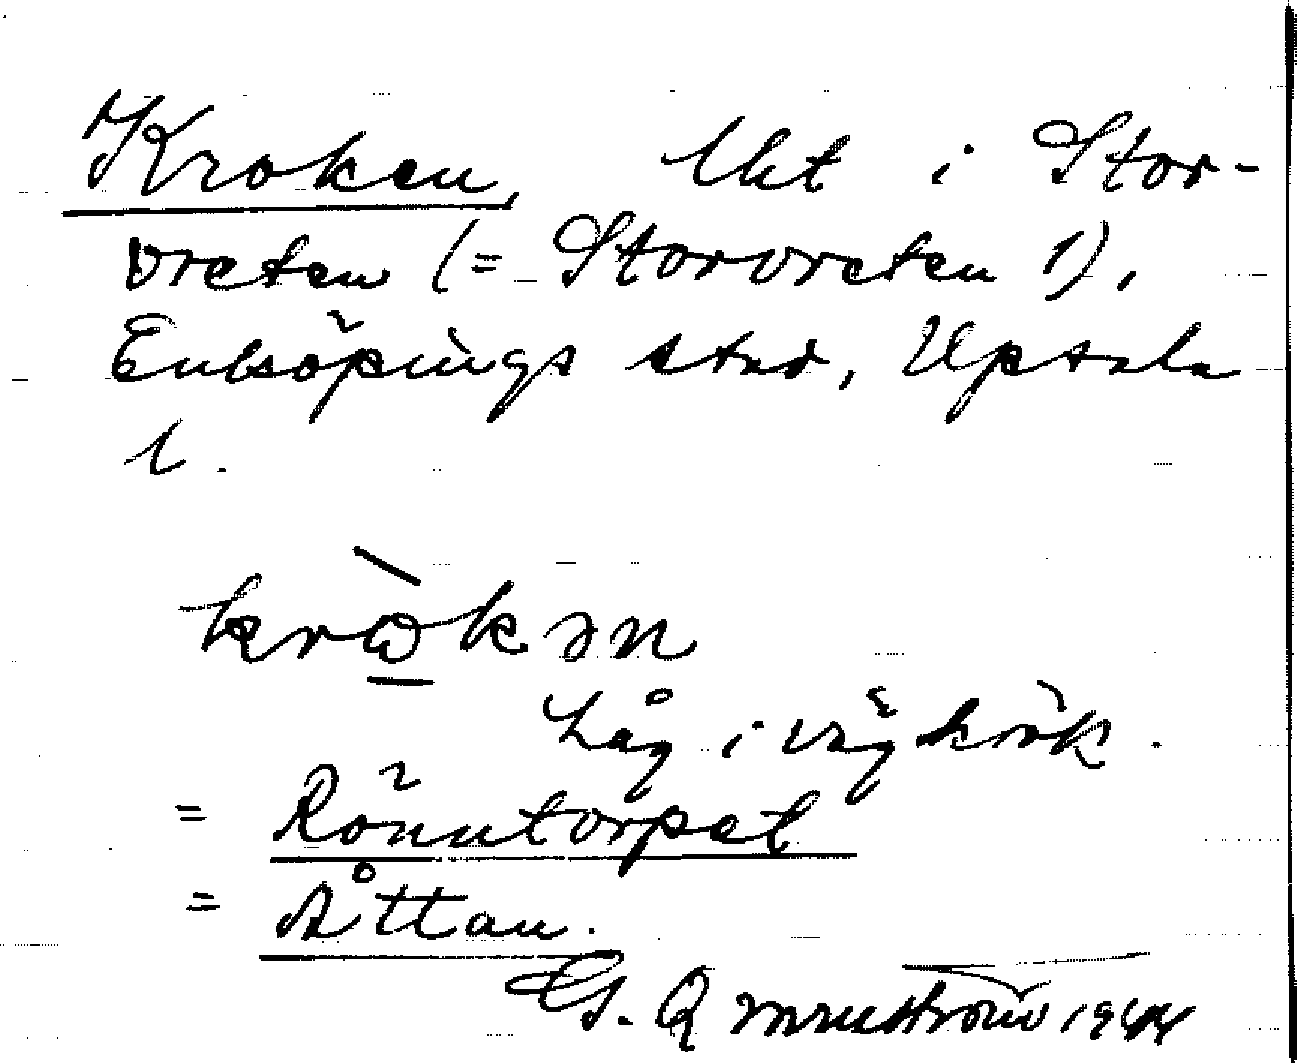 Kroken, lht i Stor-
vreten (= Storvreten 1),
Enköpings stad, Upsala
l.
krὼkən
Låg i vägkrök.
= Rönntorpet
= Åttan.
G. 1944